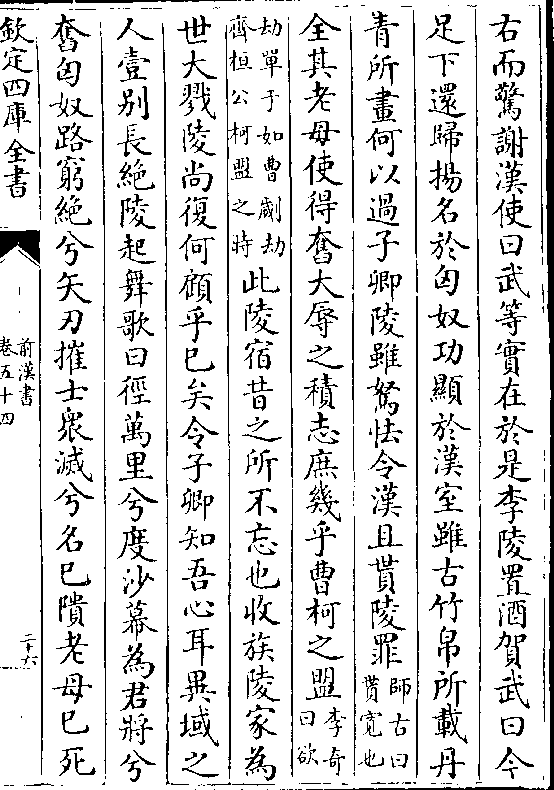 右而驚謝漢使曰武等實在於是李陵置酒賀武曰今
足下還歸揚名於匈奴功顯於漢室雖古竹帛所載丹
青所畫何以過子卿陵雖駑怯令漢且貰陵罪師古曰貰寛也
全其老母使得奮大辱之積志庶幾乎曹柯之盟李奇曰欲
劫單于如曹劌劫齊桓公柯盟之時此陵宿昔之所不忘也收族陵家為
世大戮陵尚復何顧乎已矣令子卿知吾心耳異域之
人壹别長絶陵起舞歌曰徑萬里兮度沙幕為君將兮
奮匈奴路窮絶兮矢刃摧士衆滅兮名已隤老母已死
欽定四庫全書
前漢書
卷五十四
二十六